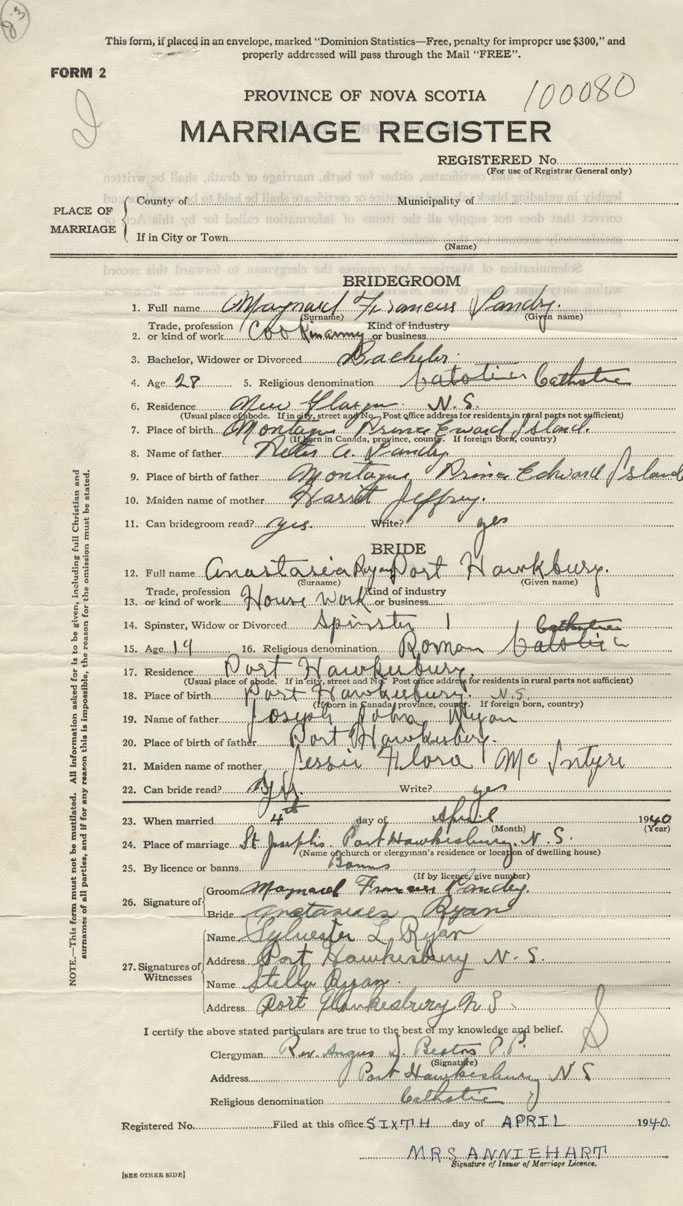 This form, if placed in an envelope, marked "Dominion Statistics—Free, penalty for improper use $300," and
properly addressed will pass through the Mail "FREE".
FORM 2
PROVINCE OF NOVA SCOTIA
100080
MARRIAGE REGISTER
REGISTERED No.
(For use of Registrar General only)
PLACE OF MARRIAGE
County of
Municipality of
If in City or Town
(Name)
BRIDEGROOM
1. Full name Maynard Francis Landry.
(Surname) (Given name)
2. Trade, profession or kind of work Cook in army Kind of industry or business
3. Bachelor, Widower or Divorced Bachelor.
4. Age 28 5. Religious denomination Catholic
6. Residence New Glasgow N.S.
(Usual place of abode. If in city, street and No. Post office address for residents in rural parts not sufficient)
7. Place of birth Montague Prince Edward Island.
(If born in Canada, province, county. If foreign born, country)
8. Name of father A. Landry
9. Place of birth of father Montague Prince Edward Island
10. Maiden name of mother Harriet Jeffrey.
11. Can bridegroom read? yes. Write? yes
BRIDE
12. Full name Anastasia Ryan Port Hawkbury.
(Surname) (Given name)
13. Trade, profession or kind of work House work Kind of industry or business
14. Spinster, Widow or Divorced Spinster
15. Age 19 16. Religious denomination Roman Catholic
17. Residence Port Hawkesbury.
(Usual place of abode. If in city, street and No. Post office address for residents in rural parts not sufficient)
18. Place of birth Port Hawkesbury. N.S.
(If born in Canada, province, county. If foreign born, country)
19. Name of father Joseph John Ryan
20. Place of birth of father Port Hawkesbury.
21. Maiden name of mother Jessie Flora McIntyre
22. Can bride read? yes. Write? yes
23. When married 4th day of April 1940
(Month) (Year)
24. Place of marriage St Josephs Port Hawkesbury, N.S.
(Name of church or clergyman's residence or location of dwelling house)
25. By licence or banns Banns
(If by licence, give number)
26. Signature of
Groom Maynard Francis Landry.
Bride Anstasies Ryan
27. Signatures of Witnesses
Name Sylvester L Ryan
Address Port Hawkesbury N.S.
Name Stella Ryan.
Address Port Hawkesbury N S.
I certify the above stated particulars are true to the best of my knowledge and belief.
Clergyman Rev. Angus J. Beaton P.P.
(Signature)
Address Port Hawkesbury N S
Religious denomination Catholic
Registered No. Filed at this office SIXTH day of APRIL 1940.
MRS ANNIE HART
Signature of Issuer of Marriage Licence.
[SEE OTHER SIDE]
NOTE.—This form must not be mutilated. All information asked for is to be given, including full Christian and
surnames of all parties, and if for any reason this is impossible, the reason for the omission must be stated.